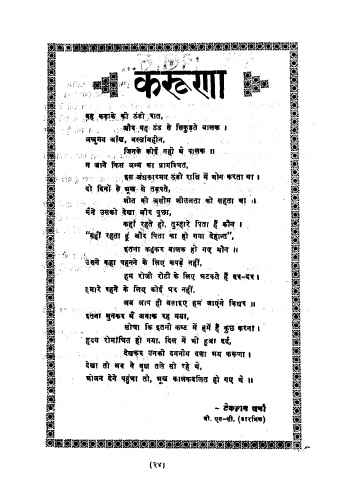 करूणा
वह कड़ाके की ठंडी रात,
और वह ठंड से सिकुड़ते बालक ।
अश्रुमय आँख, वस्त्रविहीन,
जिनके कोई नहीं थे पालक ॥
न जाने किस जन्म का प्रायश्चित,
इस अंधकारमय ठंडी रात्रि में भोग करता था ।
दो दिनों से भूख से तड़पते,
मौत की असीम शीतलता को सहता था ॥
मैंने उसको देखा और पूछा,
कहाँ रहते हो, तुम्हारे पिता हैं कौन ।
"यहीं रहता हूं और पिता का हो गया देहान्त",
इतना कहकर बालक हो गए मौन ॥
उसने कहा पहनने के लिए कपड़े नहीं,
हम रोजी रोटी के लिए भटकते हैं दर-दर ।
हमारे रहने के लिए कोई घर नहीं,
अब आप ही बताइए हम जाएंगे किधर ॥
इतना सुनकर मैं अवाक रह गया,
सोचा कि इतनी कष्ट में हमें है कुछ करना ।
हृदय रोमांचित हो गया, दिल में भी हुआ दर्द,
देखकर उनकी दयनीय दशा मय करूणा ।
देखा तो अब वे वृक्ष तले सो रहे थे,
भोजन देने पहुंचा तो, भूख कालकवलित हो गए थे ॥
~ टेकराम वर्मा
बी. एस-सी. (प्रारंभिक)
(२४)